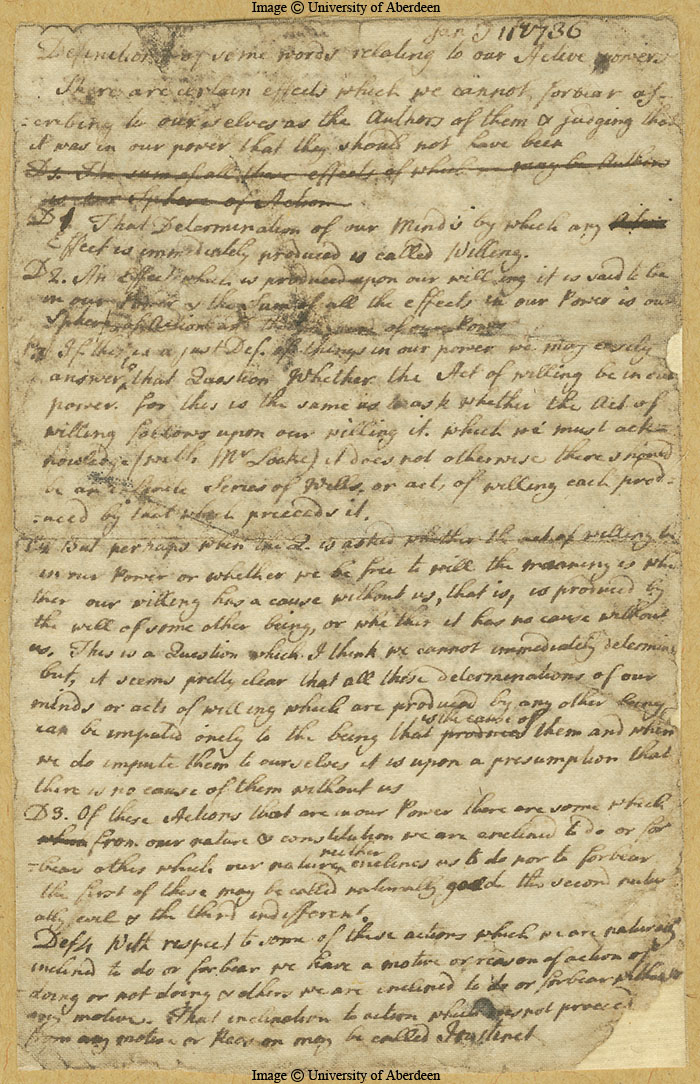 Image © University of Aberdeen
Jan 1736
Definitions of some words relating to our Active powers
There are certain effects which we cannot forbear as-
-cribing to our selves as the Authors of them & judging that
it was in our power that they should not have been
D1. The sum of all these effects of which we may be Authors
is our Sphere of Action
D 1 That Determination of our Minds by which any
Effect is immediately produced is called Willing.
D 2. An Effect which is produced upon our willing it is said to be
in our Power & the Sum of all the effects in our Power is our
Sphere of Action and the of our Power
If this is a just Def. of things in our power we may easily
answer that Question Whether the Act of willing be in our
power. for this is the same as to ask whether the Act of
willing follows upon our willing it. which we must ack-
nowledge (with Mr Locke) it does not otherwise there should
be an infinite Series of Wills. or acts of willing each prod-
-uced by that which preceeds it.
But perhaps when the Q. is asked whether the act of willing be
in our Power or whether we be free to will the meaning is whe
ther our willing has a cause without us, that is, is produced by
the will of some other being, or whether it has no cause without
us. This is a Question which I think we cannot immediately determine
but, it seems pretty clear that all those determinations of our
minds or acts of willing which are produced by any other being
can be imputed onely to the being that produces is the cause of them and when
we do impute them to ourselves it is upon a presumption that
there is no cause of them without us
D 3. Of these Actions that are in our Power there are some which
from our nature & constitution we are enclined to do or for
-bear others which our nature neither enclines us to do nor to forbear
the first of these may be called naturally good the second natur
ally evil & the third indifferent.
Def 4 With respect to some of these actions which we are naturally
inclined to do or forbear we have a motive or reason of action or
doing or not doing & others we are inclined to do or forbear without
any motive. That inclination to action which does not proceed
from any motive or Reason may be called Instinct
Image © University of Aberdeen